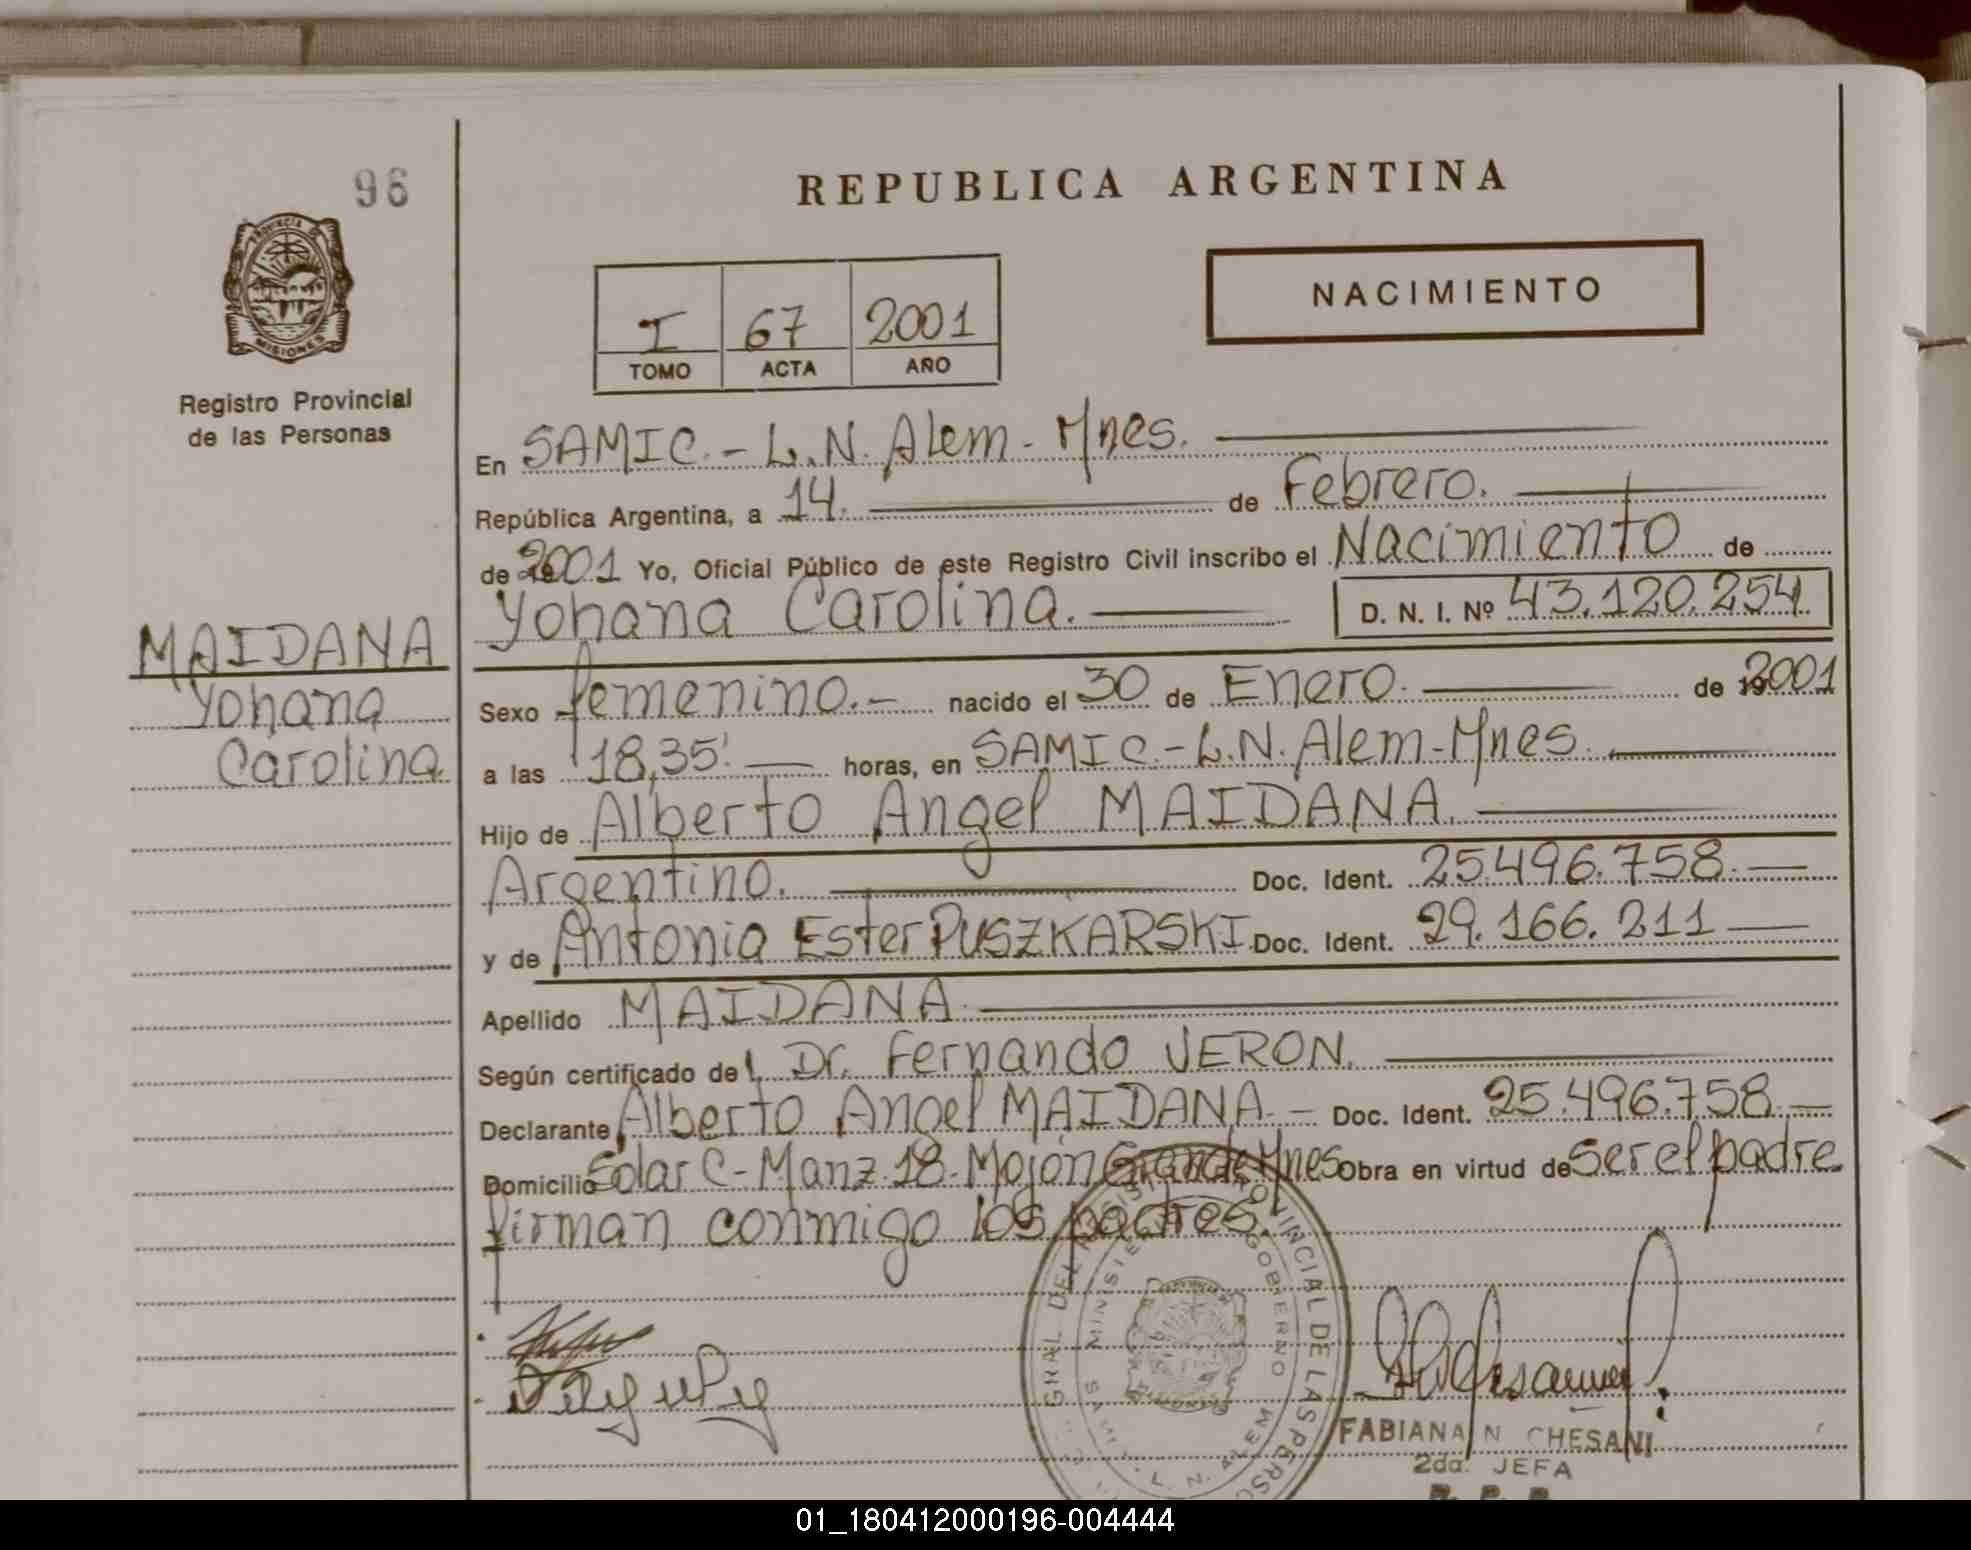 96
REPUBLICA ARGENTINA
PROVINCIA DE
MISIONES
Registro Provincial
de las Personas
I 67 2001
TOMO ACTA AÑO
NACIMIENTO
En SAMIC.- L.N. Alem - Mnes.
República Argentina, a 14. de Febrero.
de 2001 Yo, Oficial Público de este Registro Civil inscribo el Nacimiento de
Yohana Carolina. D. N. I. Nº 43.120.254
MAIDANA
Yohana
Carolina
Sexo femenino.- nacido el 30 de Enero. de 2001
a las 18,35' horas, en SAMIC-L.N. Alem-Mnes.
Hijo de Alberto Angel MAIDANA.
Argentino. Doc. Ident. 25.496.758.-
y de Antonia Ester PUSZKARSKI Doc. Ident. 29.166.211
Apellido MAIDANA
Según certificado del Dr. Fernando VERON.
Declarante Alberto Angel MAIDANA.- Doc. Ident. 25.496.758.-
Domicilio Solar C-Manz 18-Mojón Grande Mnes Obra en virtud de ser el padre
firman conmigo los padres.
GRAL DEL PROVINCIAL DE LAS
MINIS GOBIERNO
L. N. ALEM
FABIANA N CHESANI
2da. JEFA
01_180412000196-004444